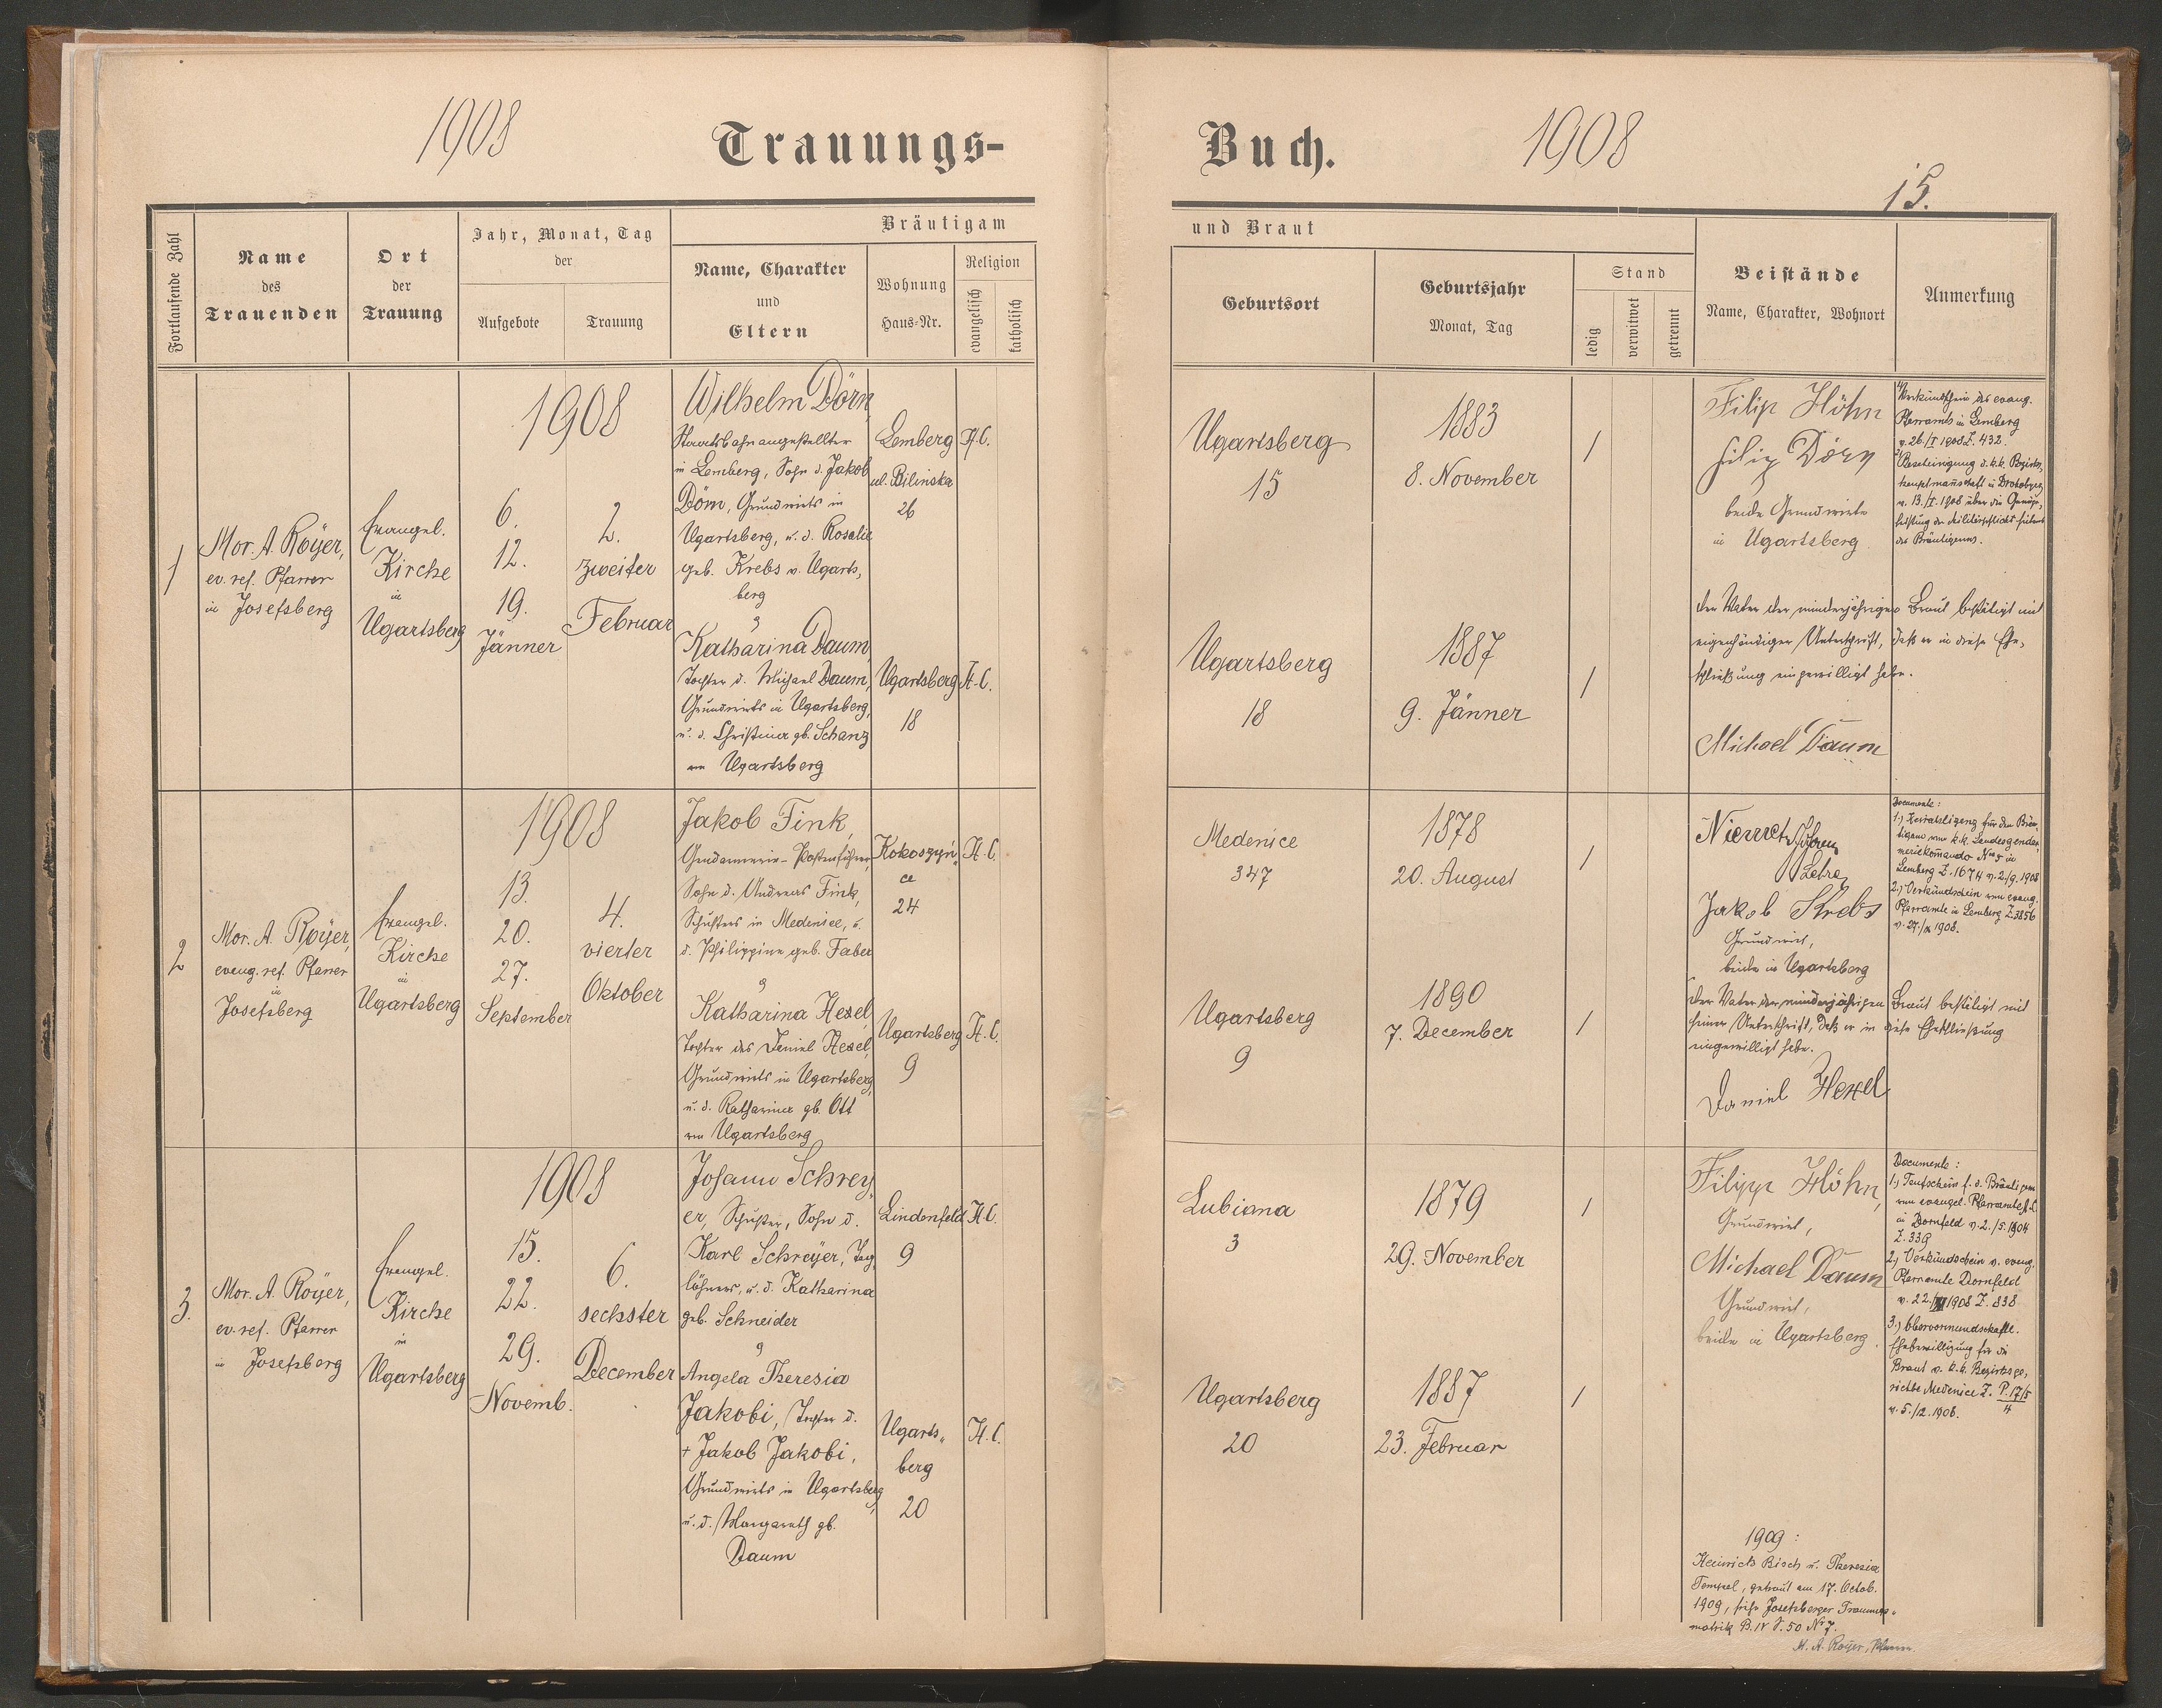 1908
Trauungs-
Buch.
1908
15.
Fortlaufende Zahl
Name
des
Trauenden
Ort
der
Trauung
Jahr, Monat, Tag
der
Aufgebote
Trauung
Bräutigam
Name, Charakter
und
Eltern
Wohnung
Haus-Nr.
Religion
evangelisch
katholisch
und Braut
Geburtsort
Geburtsjahr
Monat, Tag
Stand
ledig
verwitwet
getrennt
Beistände
Name, Charakter, Wohnort
Anmerkung
1
Mor. A. Royer,
ev. ref. Pfarrer
in Josefsberg
Evangel.
Kirche
in
Ugartsberg
1908
6.
12.
19.
Jänner
2.
zweiter
Februar
Wilhelm Dörn,
Staatsbahnangestellter
in Lemberg, Sohn d. Jakob
Dörn, Grundwirts in
Ugartsberg, u. d. Rosalie
geb. Krebs v. Ugarts,
berg
&
Katharina Daum,
Tochter d. Michael Daum,
Grundwirts in Ugartsberg,
u. d. Christina gb. Schanz
von Ugartsberg
Lemberg
ul. Bilinska
26
H.C.
Ugartsberg
18
H.C.
Ugartsberg
15
1883
8. November
/
Ugartsberg
18
1887
9. Jänner
/
Filip Höhn
Filip Dörn
beide Grundwirte
in Ugartsberg
1) Verkündschein des evang.
Pfarramts in Lemberg
v. 26./I 1908 Z. 432.
2) Bescheinigung d. k.k. Bezirks,
hauptmannschaft in Drohobycz
v. 13./I. 1908 über die
des Bräutigams.
Der Vater der minderjährigen Braut bestätigt mit
eigenhändiger Unterschrift, daß er in diese Ehe,
schließung eingewilligt habe.
Michael Daum
2
Mor. A. Royer,
evang. ref. Pfarrer
in
Josefsberg
Evangel.
Kirche
in
Ugartsberg
1908
13.
20.
27.
September
4.
vierter
Oktober
Jakob Fink,
Gendarmerie-Postenführer,
Sohn d. Andreas Fink,
Schusters in Medenice, u.
d. Philippine geb. Faber
&
Katharina Hexel,
Tochter des Daniel Hexel,
Grundwirts in Ugartsberg,
u. d. Katharina gb. Ott
von Ugartsberg
Kokoszyń,
ce
24
H.C.
Ugartsberg
9
H.C.
Medenice
347
1878
20. August
/
Ugartsberg
9
1890
7. December
/
Jakob Krebs
Grundwirt,
beide in Ugartsberg
Documente:
1.) Heiratslizenz für den Bräu,
tigam vom k.k. Landesgendar,
meriekommando No 5 in
Lemberg Z. 1674 v. 2./9. 1908
2.) Verkündschein vom evang.
Pfarramte in Lemberg Z. 3856
v. 27./IX 1908.
Der Vater der minderjährigen Braut bestätigt mit
seiner Unterschrift, daß er in diese Eheschließung
eingewilligt habe.
Daniel Hexel
3.
Mor. A. Royer,
ev. ref. Pfarrer
in Josefsberg
Evangel.
Kirche
in
Ugartsberg
1908
15.
22.
29.
Novemb.
6.
sechster
December
Johann Schrey,
er, Schuster, Sohn d.
Karl Schreyer, Tag,
löhners, u. d. Katharina
geb. Schneider
&
Angela Theresia
Jakobi, Tochter d.
+ Jakob Jakobi,
Grundwirts in Ugartsberg,
u. d. Margareth gb.
Daum
Lindenfeld
9
H.C.
Ugarts,
berg
20
H.C.
Lubiana
3
1879
29. November
/
Ugartsberg
20
1887
23. Februar
/
Filipp Höhn,
Grundwirt,
Michael Daum
Grundwirt,
beide in Ugartsberg
Documente:
1.) Taufschein f. d. Bräutigam
vom evangel. Pfarramte A.C.
in Dornfeld v. 2./5. 1904
Z. 339
2.) Verkündschein v. evang.
Pfarramte Dornfeld
v. 22./XI 1908 Z. 838
3.) Obervormundschaftl.
Ehebewilligung für die
Braut v. k.k. Bezirksge,
richte Medenice Z. P. 17/5
4
v. 5./12. 1908.
1909:
Heinrich Bisch u. Theresia
Tempel, getraut am 17. Octob.
1909, siehe Josefsberger Trauungs,
matrik B. IV S. 50 No 7.
M. A. Royer, Pfarrer.